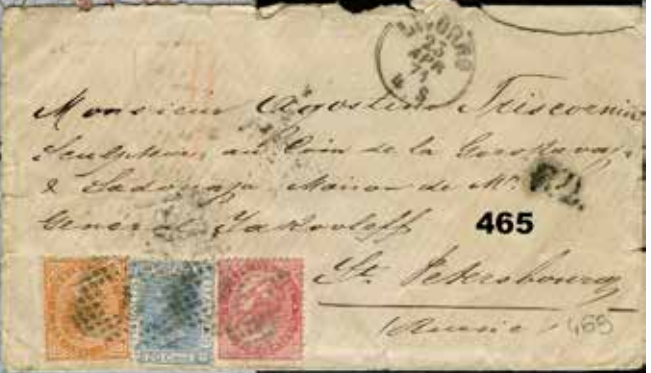 LIVORNO
23
APR
71
4 S
Monsieur Agostino Triscornia
Sculpteur, au Coin de la
& Sadovaja, Maison de Mr. le
P.D.
General Jakovleff
465
St. Petersbourg
(Russie)
465
20 Cent